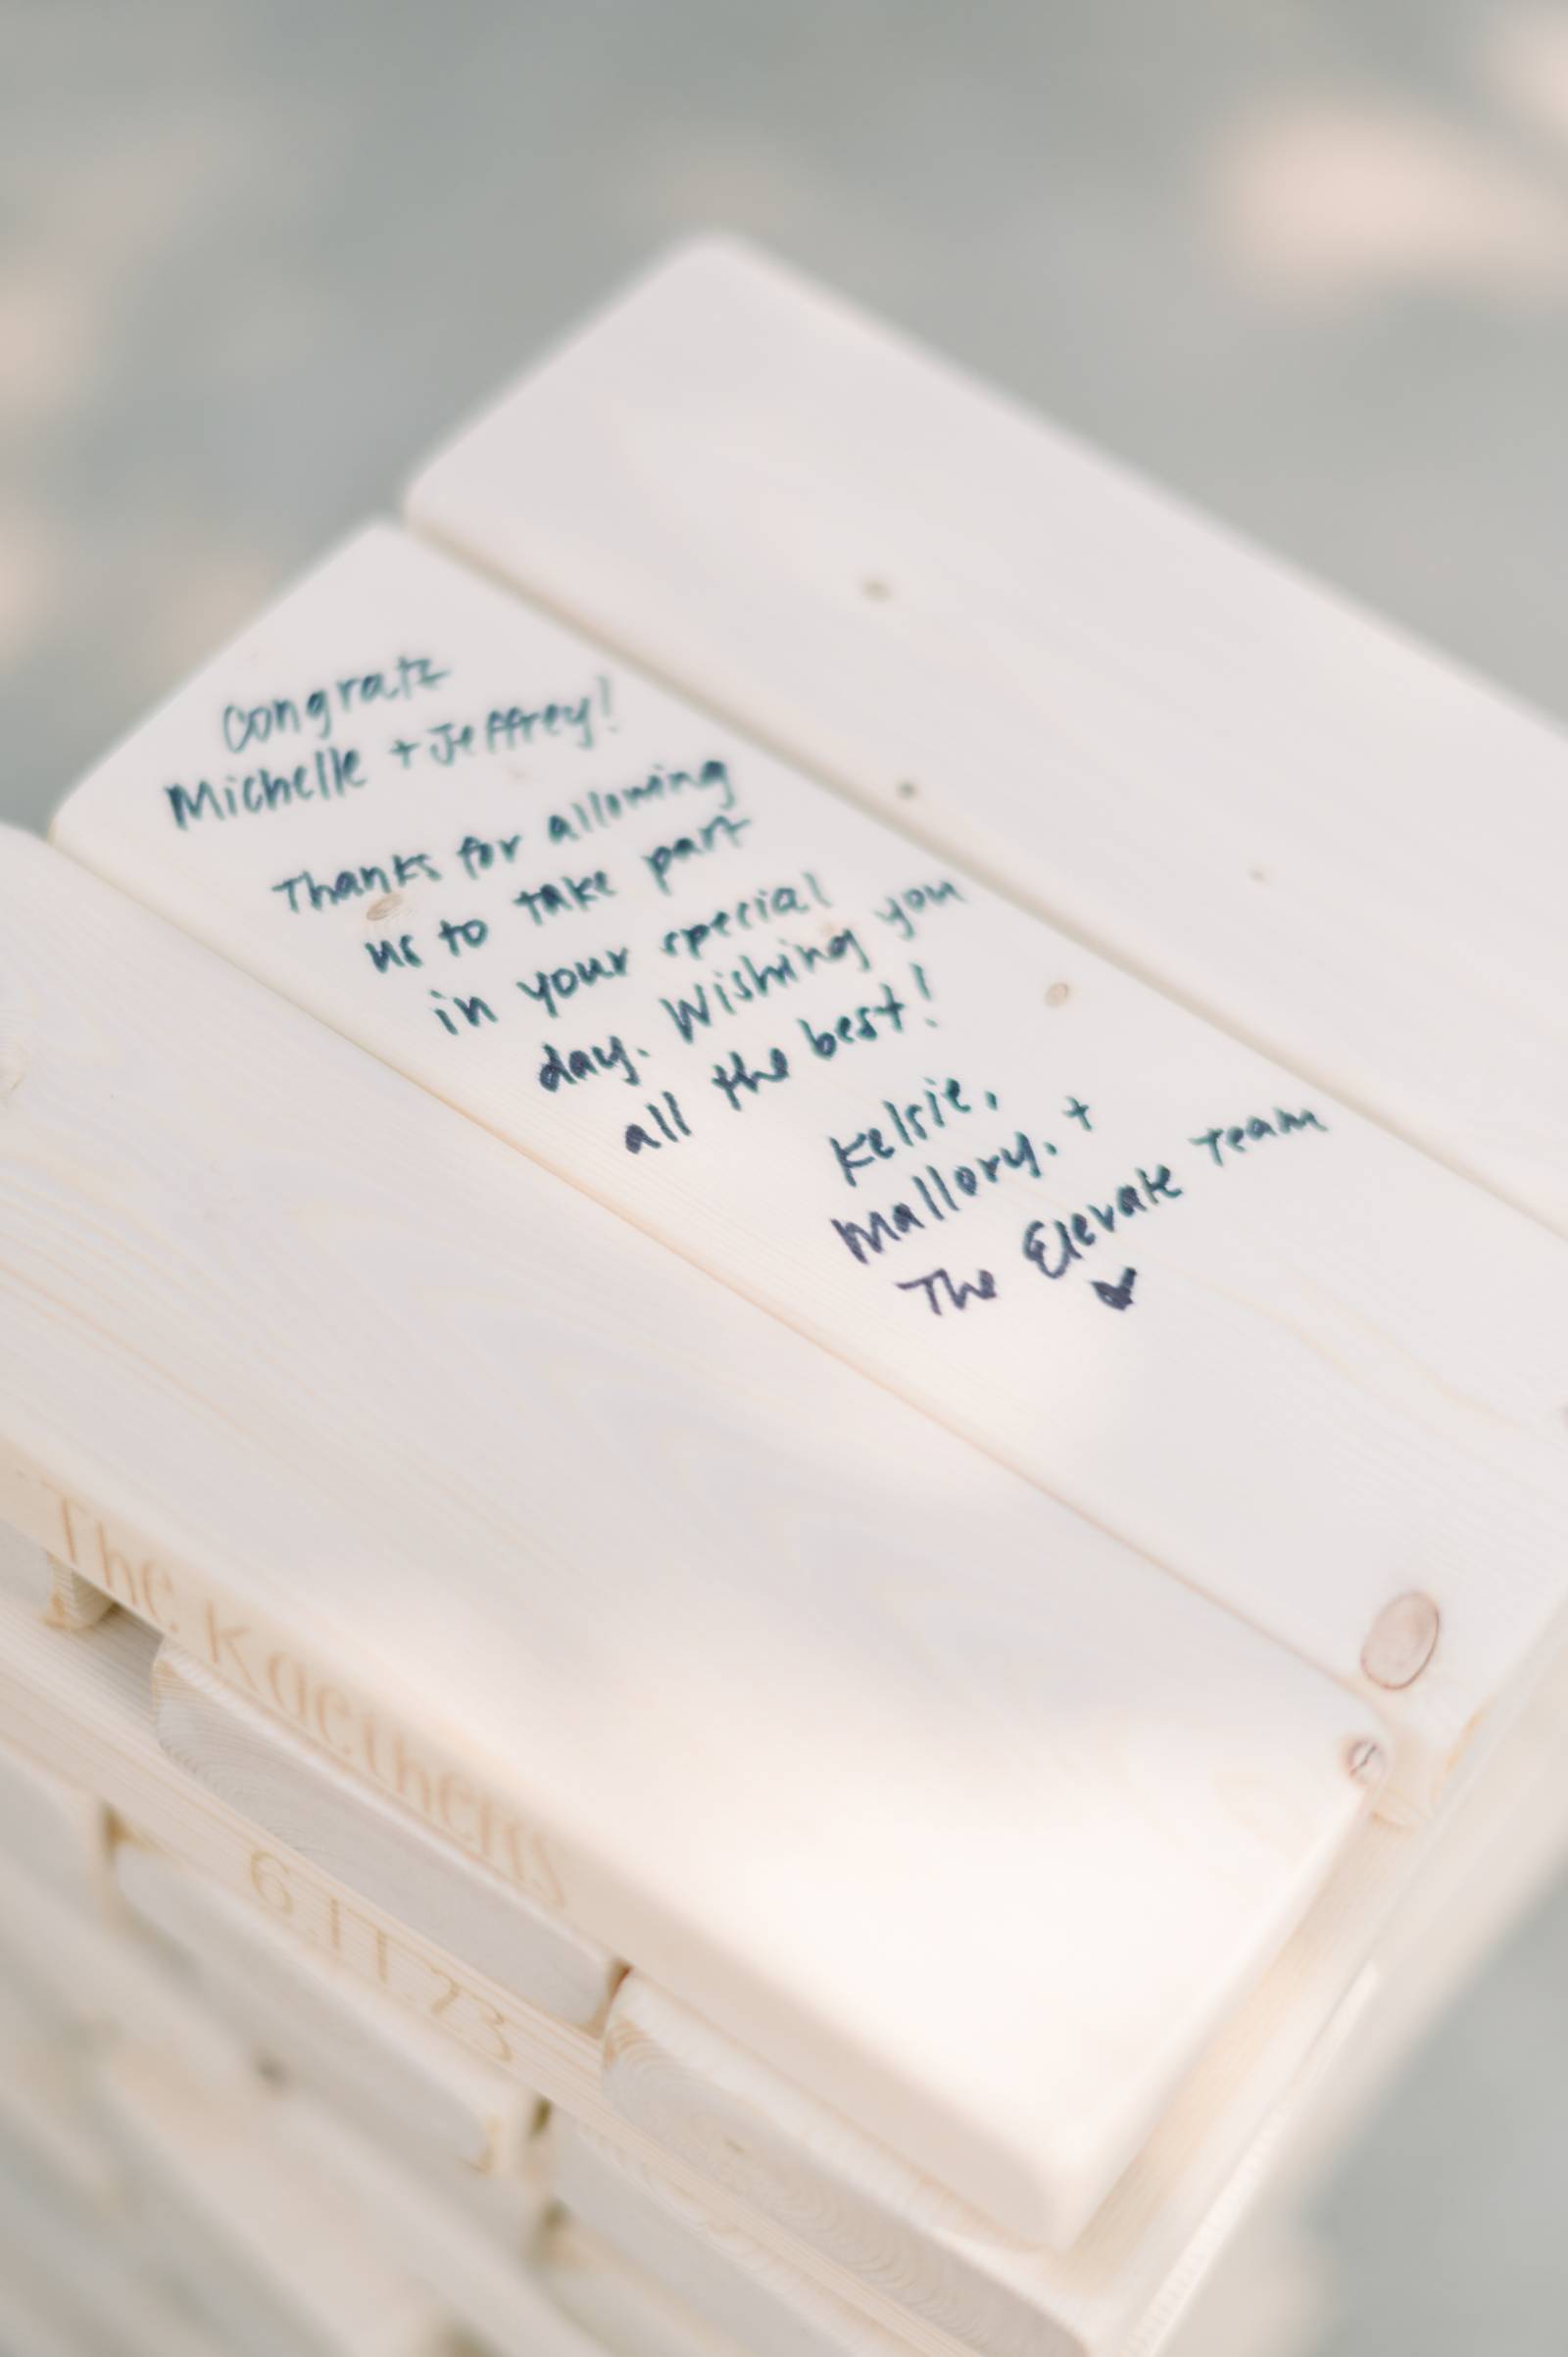 Congrats
Michelle + Jeffrey!
Thanks for allowing
us to take part
in your special
day. Wishing you
all the best!
Kelsie,
Mallory, +
The Elevate Team
The Kaethers
6.17.23